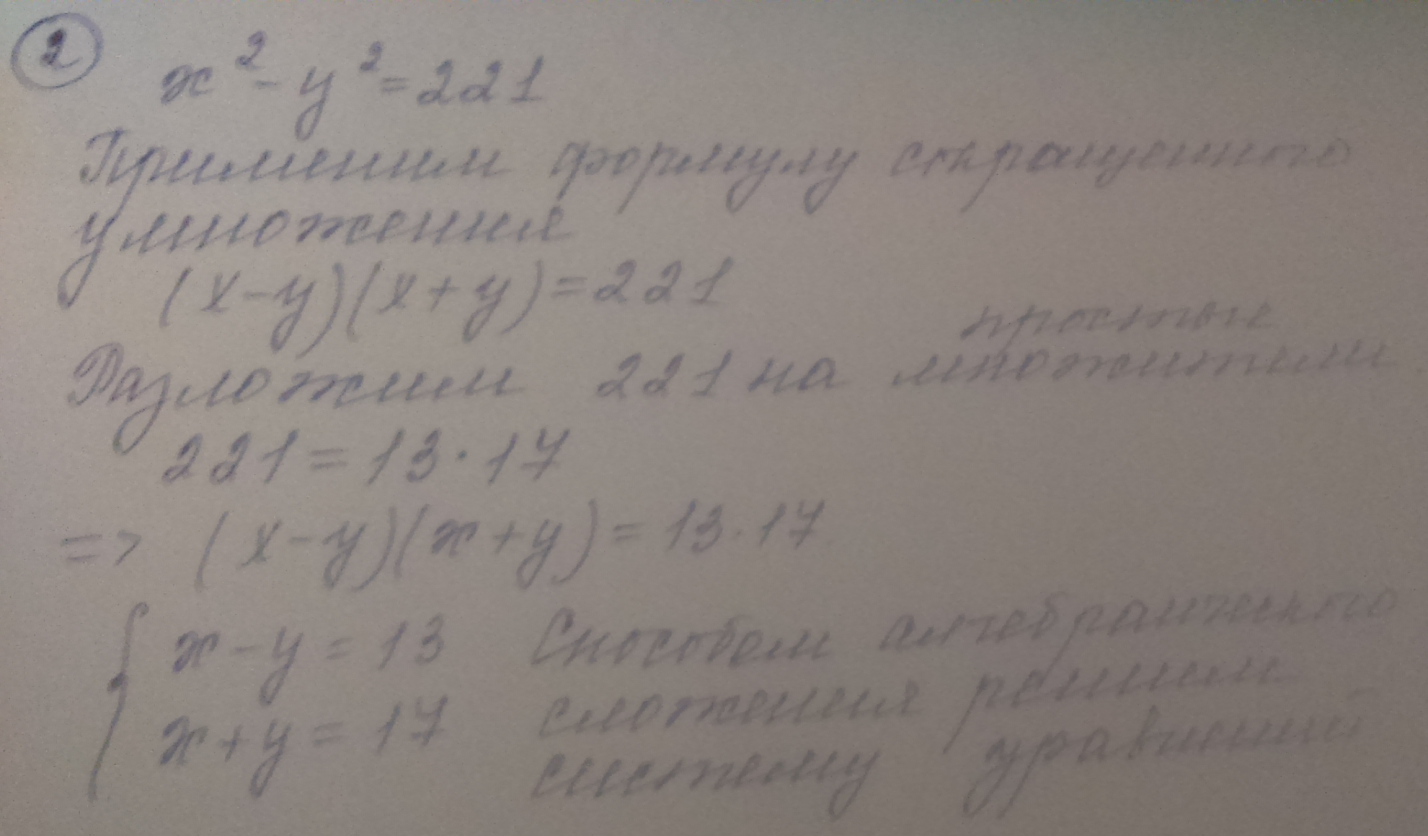 2
x² - y² = 221
Применим формулу сокращенного
умножения
(x-y)(x+y)=221
простые
Разложим 221 на множители
221 = 13 · 17
=> (x-y)(x+y) = 13 · 17
x - y = 13 Способом алгебраического
x + y = 17 сложения решим
систему уравнений